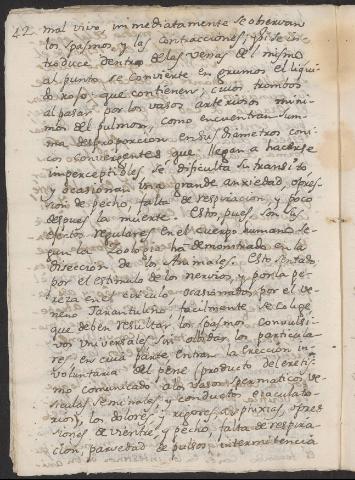 42 mal vivo inmediatamente se observan
los spasmos, y las contracciones; si se in-
troduce dentro de las venas del mismo
al punto se convierte en grumos el liqui
do roso que contienen; cuios trombos
al pasar por los vasos arteriosos mini-
mos del pulmon, como encuentran sum-
ma desproporcion en sus diametros coni-
cos convergentes que llegan a hacerse
imperceptibles se dificulta su transito
y ocasionan una grande anxiedad, opre-
sion de pecho, falta de respiracion, y poco
despues la muerte. Esto, pues, son los
efectos regulares en el cuerpo humano se-
gun la Zoologia ha demostrado en la
diseccion de los Animales. Esto sentado
por el estimulo de los nervios, y por la pe-
reza en el circulo, ocasionados por el ve-
neno Tarantulino, facilmente se colige
que deben resultar los spasmos convulsi-
vos universales sin olvidar los particula-
res en cuia parte entran la ereccion in-
voluntaria del pene (producto del eretis-
mo comunicado a los vasos spermaticos ve-
siculas seminales, y conductos eiaculato-
rios), los dolores, rigores, opre-
siones de vientre, y pecho, falta de respira-
cion, parvedad de pulsos, intermitencia